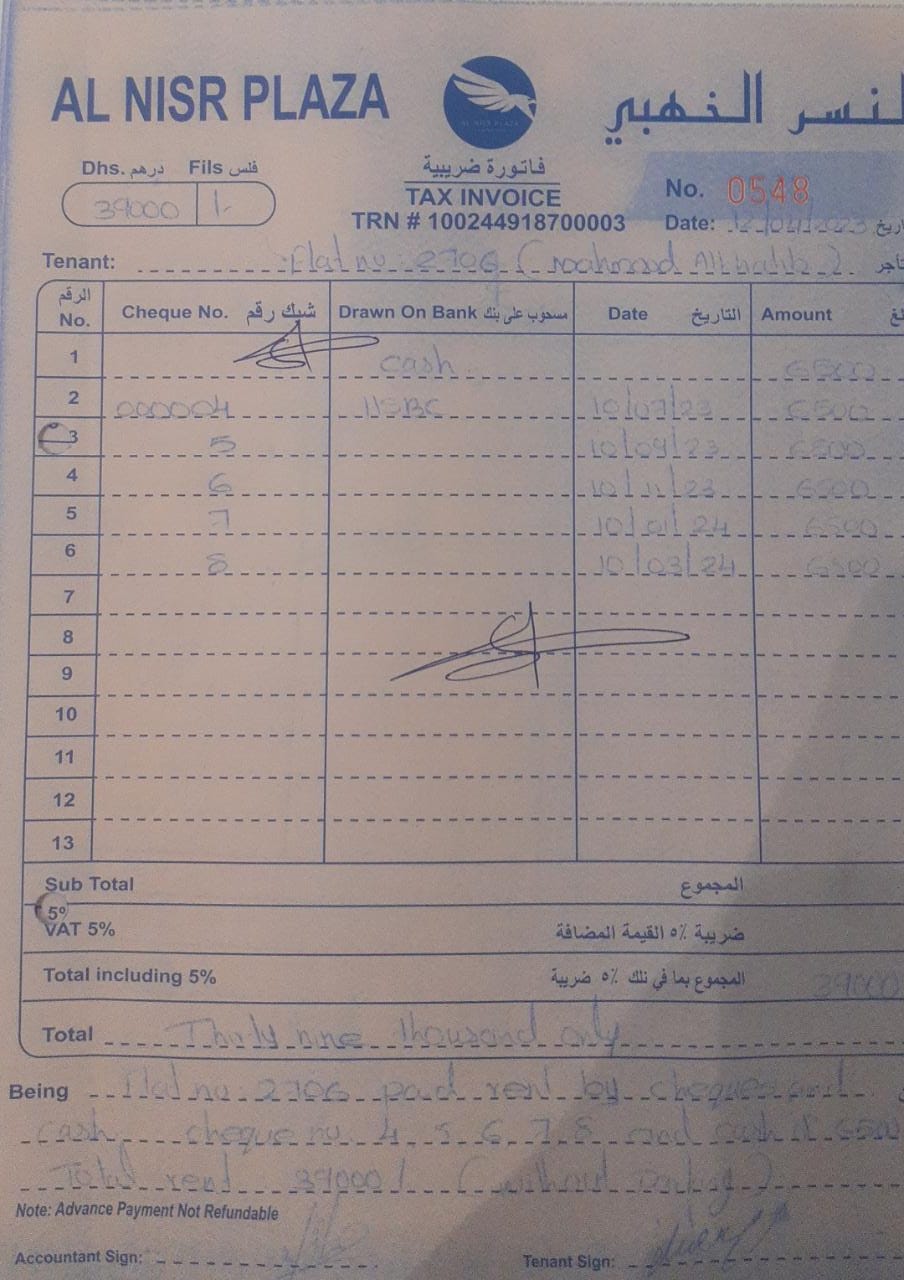 AL NISR PLAZA
AL NISR PLAZA
لنسر الذهبي
Dhs. درهم Fils فلس
39000 /-
فاتورة ضريبية
TAX INVOICE
TRN # 100244918700003
No. 0548
Date: 12/04/2023
Tenant: Flat no: 2706
الرقم No. Cheque No. شيك رقم Drawn On Bank مسحوب على بنك Date التاريخ Amount
1 cash 6500
2 000004 HSBC 10/07/23 6500
3 5 10/09/23 6500
4 6 10/11/23 6500
5 7 10/01/24 6500
6 8 10/03/24 6500
7
8
9
10
11
12
13
Sub Total المجموع
5%
VAT 5% ضريبة ٥٪ القيمة المضافة
Total including 5% المجموع بما في ذلك ٥٪ ضريبة 39000
Total Thirty nine thousand only
Being Flat no: 2706 paid rent by cheques and
cash cheque no. 4, 5, 6, 7, 8 and cash 6500
Total rent 39000/ (without parking)
Note: Advance Payment Not Refundable
Accountant Sign: Tenant Sign: